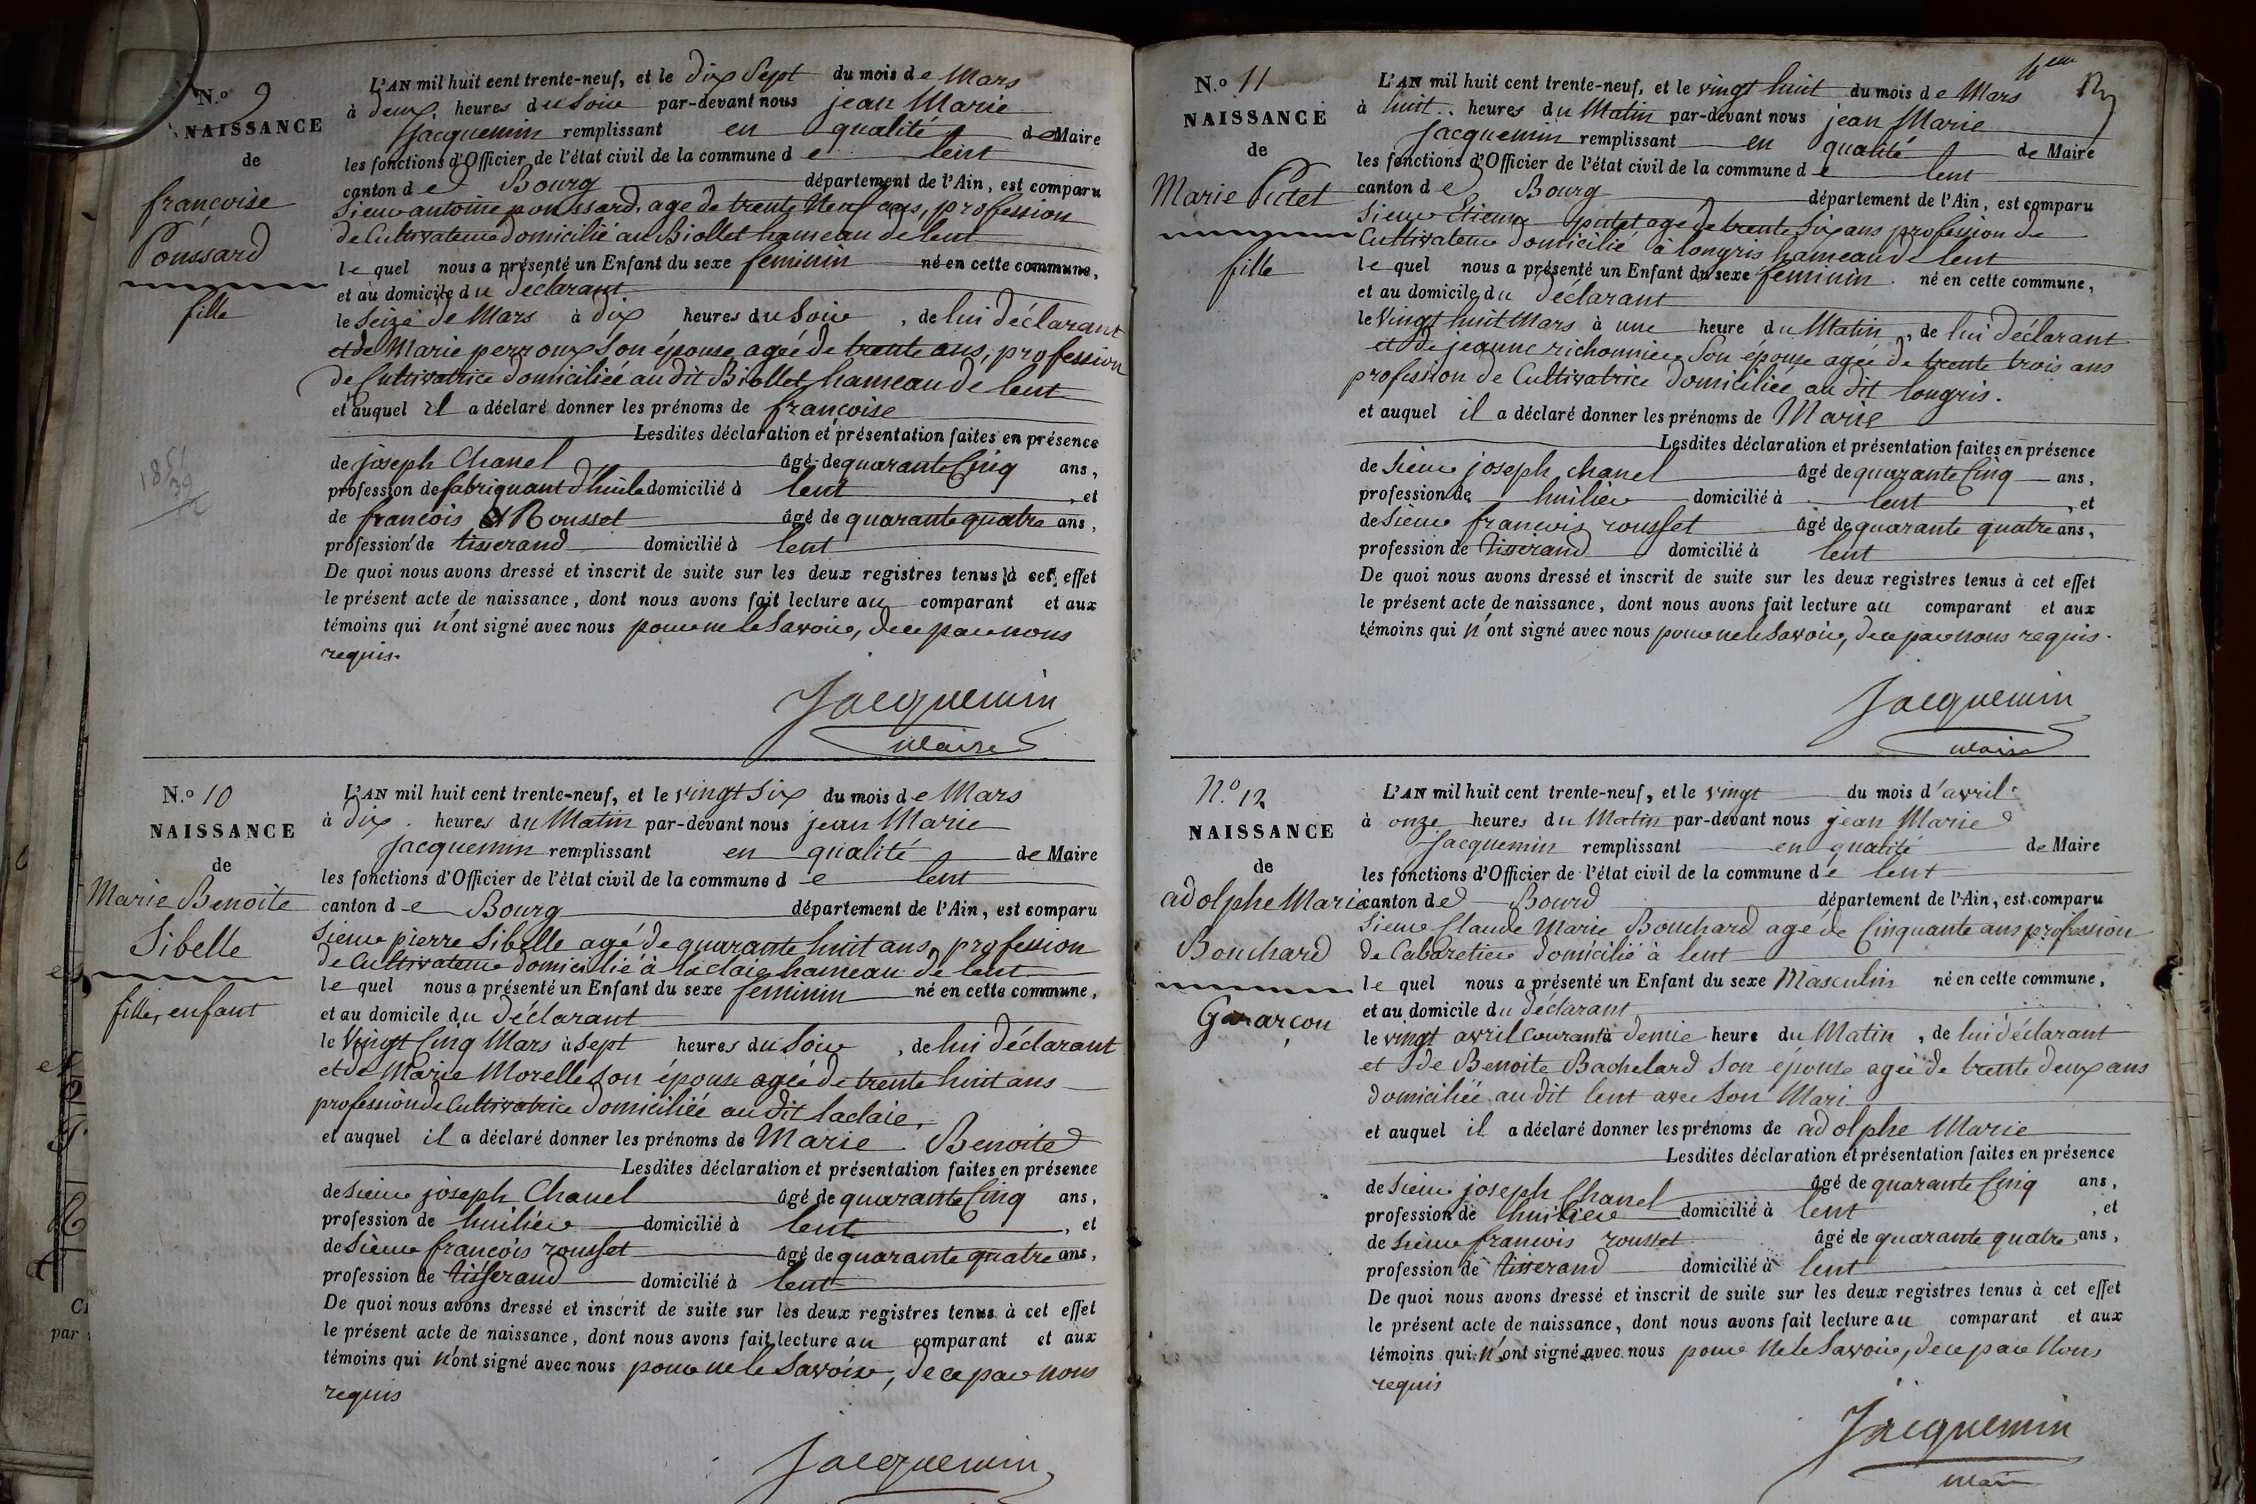 N.o 9
NAISSANCE
de
françoise
Poussard
fille
L'AN mil huit cent trente-neuf, et le dix Sept du mois de Mars
à deux heures du Soir par-devant nous jean Marie
Jacquemin remplissant en qualité de Maire
les fonctions d'Officier de l'état civil de la commune de lent
canton de Bourg département de l'Ain, est comparu
Sieur antoine poussard, agé de trente Neuf ans, profession
de Cultivateur domicilié au Biollet hameau de lent
lequel nous a présenté un Enfant du sexe feminin né en cette commune,
et au domicile du déclarant
le Seize de Mars à dix heures du Soir, de lui déclarant
et de Marie perroux Son épouse agée de trente ans, profession
de Cultivatrice domiciliée au dit Biollet hameau de lent
et auquel il a déclaré donner les prénoms de françoise
Lesdites déclaration et présentation faites en présence
de joseph Chanel âgé de quarante Cinq ans,
profession de fabriquant d'huile domicilié à lent, et
de françois Rousset âgé de quarante quatre ans,
profession de tisserand domicilié à lent
De quoi nous avons dressé et inscrit de suite sur les deux registres tenus à cet effet
le présent acte de naissance, dont nous avons fait lecture au comparant et aux
témoins qui n'ont signé avec nous pour ne le Savoir, de ce par nous
requis.
Jacquemin
maire
N.o 10
NAISSANCE
de
Marie Benoite
Sibelle
fille, enfant
L'AN mil huit cent trente-neuf, et le vingt Six du mois de Mars
à dix heures du Matin par-devant nous jean Marie
Jacquemin remplissant en qualité de Maire
les fonctions d'Officier de l'état civil de la commune de lent
canton de Bourg département de l'Ain, est comparu
Sieur pierre Sibelle agé de quarante huit ans, profession
de Cultivateur domicilié à laclaie hameau de lent
lequel nous a présenté un Enfant du sexe feminin né en cette commune,
et au domicile du déclarant
le Vingt Cinq Mars à Sept heures du Soir, de lui déclarant
et de Marie Morelle Son épouse agée de trente huit ans
profession de Cultivatrice domiciliée au dit laclaie,
et auquel il a déclaré donner les prénoms de Marie Benoite
Lesdites déclaration et présentation faites en présence
de Sieur joseph Chanel âgé de quarante Cinq ans,
profession de huilier domicilié à lent, et
de Sieur françois rousset âgé de quarante quatre ans,
profession de tisserand domicilié à lent
De quoi nous avons dressé et inscrit de suite sur les deux registres tenus à cet effet
le présent acte de naissance, dont nous avons fait lecture au comparant et aux
témoins qui n'ont signé avec nous pour ne le Savoir, de ce par nous
requis
Jacquemin
N.o 11
NAISSANCE
de
Marie Putet
fille
L'AN mil huit cent trente-neuf, et le vingt huit du mois de Mars
à huit heures du Matin par-devant nous jean Marie
Jacquemin remplissant en qualité de Maire
les fonctions d'Officier de l'état civil de la commune de lent
canton de Bourg département de l'Ain, est comparu
Sieur Etienne putet agé de trente Six ans profession de
Cultivateur domicilié à longris hameau de lent
lequel nous a présenté un Enfant du sexe feminin né en cette commune,
et au domicile du déclarant
le Vingt huit Mars à une heure du Matin, de lui déclarant
et de jeanne richonnier Son épouse agée de trente trois ans
profession de Cultivatrice domiciliée au dit longris.
et auquel il a déclaré donner les prénoms de Marie
Lesdites déclaration et présentation faites en présence
de Sieur joseph chanel âgé de quarante Cinq ans,
profession de huilier domicilié à lent, et
de Sieur françois rousset âgé de quarante quatre ans,
profession de tisserand domicilié à lent
De quoi nous avons dressé et inscrit de suite sur les deux registres tenus à cet effet
le présent acte de naissance, dont nous avons fait lecture au comparant et aux
témoins qui n'ont signé avec nous pour ne le Savoir, de ce par nous requis.
Jacquemin
maire
N.o 12
NAISSANCE
de
adolphe Marie
Bouchard
Garçon
L'AN mil huit cent trente-neuf, et le vingt du mois d'avril
à onze heures du Matin par-devant nous jean Marie
Jacquemin remplissant en qualité de Maire
les fonctions d'Officier de l'état civil de la commune de lent
canton de Bourd département de l'Ain, est comparu
Sieur Claude Marie Bouchard agé de Cinquante ans profession
de Cabaretier domicilié à lent
lequel nous a présenté un Enfant du sexe Masculin né en cette commune,
et au domicile du déclarant
le vingt avril courant à demie heure du Matin, de lui déclarant
et de Benoite Bachelard Son épouse agée de trente deux ans
domiciliée au dit lent avec Son Mari
et auquel il a déclaré donner les prénoms de adolphe Marie
Lesdites déclaration et présentation faites en présence
de Sieur joseph Chanel âgé de quarante Cinq ans,
profession de huilier domicilié à lent, et
de Sieur françois rousset âgé de quarante quatre ans,
profession de tisserand domicilié à lent
De quoi nous avons dressé et inscrit de suite sur les deux registres tenus à cet effet
le présent acte de naissance, dont nous avons fait lecture au comparant et aux
témoins qui n'ont signé avec nous pour ne le Savoir, de ce par Nous
requis
Jacquemin